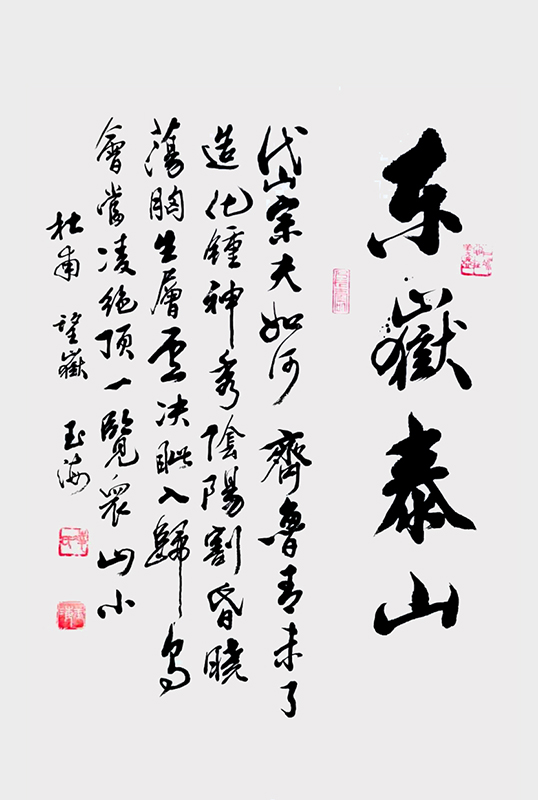 东嶽泰山
岱山宗夫如何齊魯青未了
造化鍾神秀陰陽割昏曉
蕩胸生層雲决眦入歸鳥
會當凌絶頂一覽眾山小
杜甫 望嶽 玉海